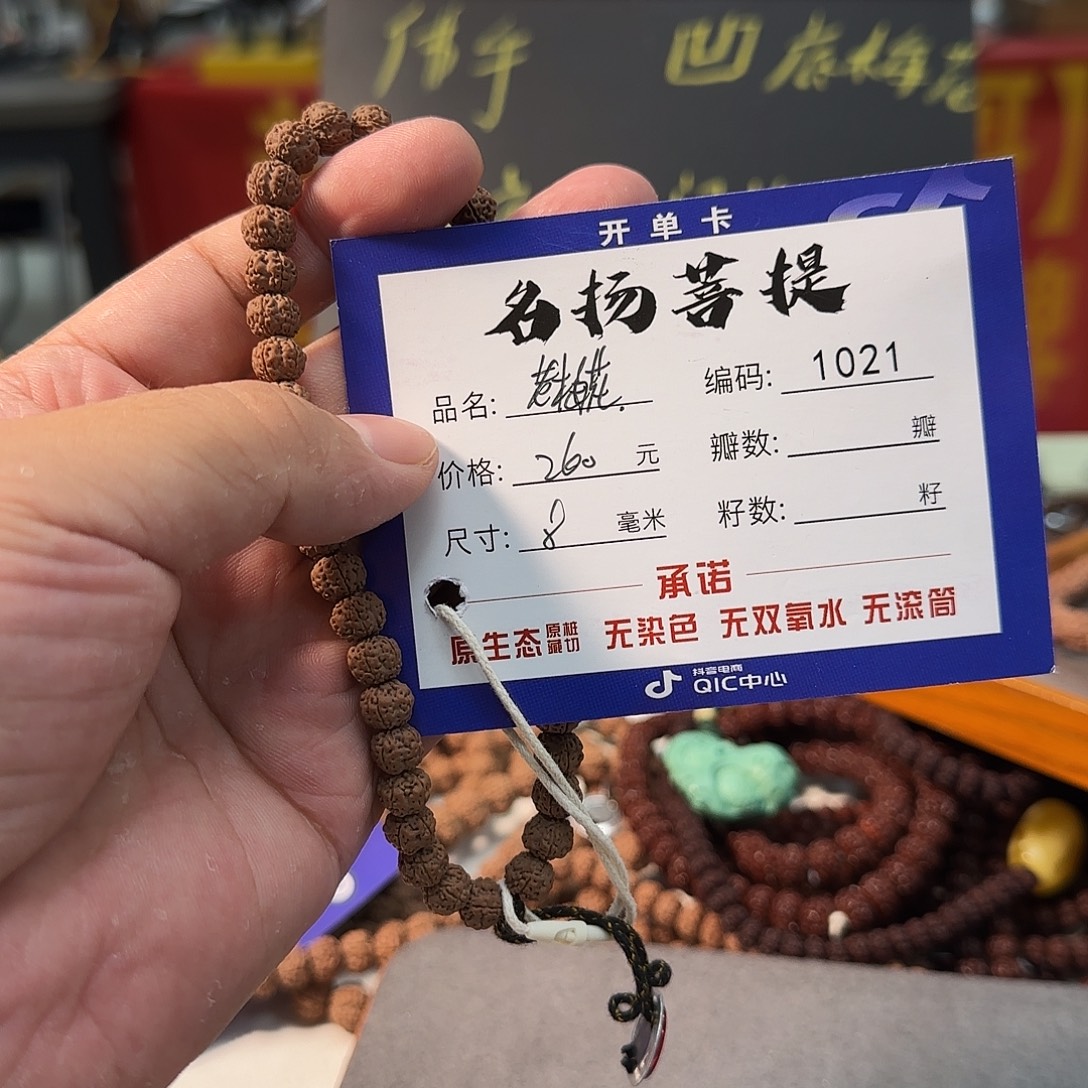 佛手 凹底梅花
开单卡
名扬菩提
品名: 编码: 1021
价格: 260 元 瓣数: 瓣
尺寸: 8 毫米 籽数: 籽
承诺
原生态 原桩藏切 无染色 无双氧水 无滚筒
抖音电商
QIC中心